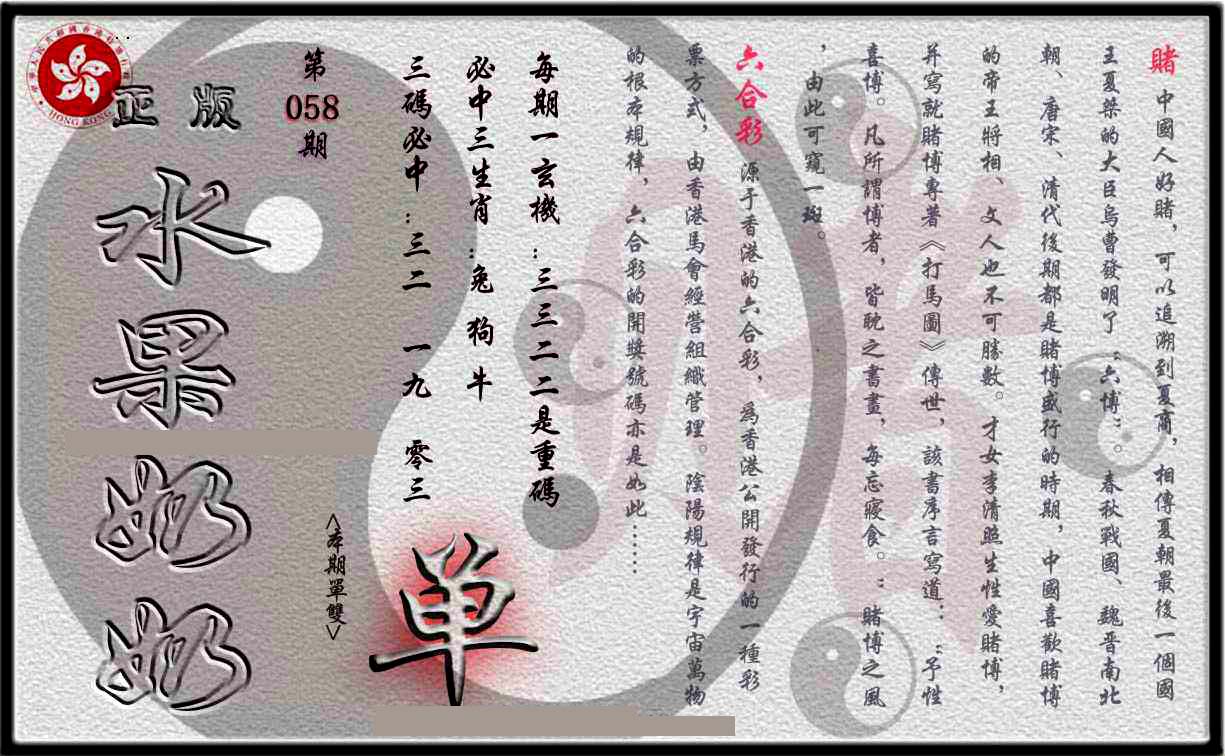 賭 中國人好賭，可以追溯到夏商，相傳夏朝最後一個國
王夏桀的大臣烏曹發明了“六博”。春秋戰國、魏晋南北
朝、唐宋、清代後期都是賭博盛行的時期，中國喜歡賭博
的帝王將相、文人也不可勝數。才女李清照生性愛賭博，
并寫就賭博專著《打馬圖》傳世，該書序言寫道：“予性
喜博。凡所謂博者，皆耽之書畫，每忘寢食。”賭博之風
，由此可窺一斑。
六合彩 源于香港的六合彩，爲香港公開發行的一種彩
票方式，由香港馬會經營組織管理。陰陽規律是宇宙萬物
的根本規律，六合彩的開獎號碼亦是如此……
每期一玄機：三三二二是重碼
必中三生肖：兔 狗 牛
三碼必中：三二 一九 零三
單
第
058
期
<本期單雙>
正版
水果奶奶
HONG KONG